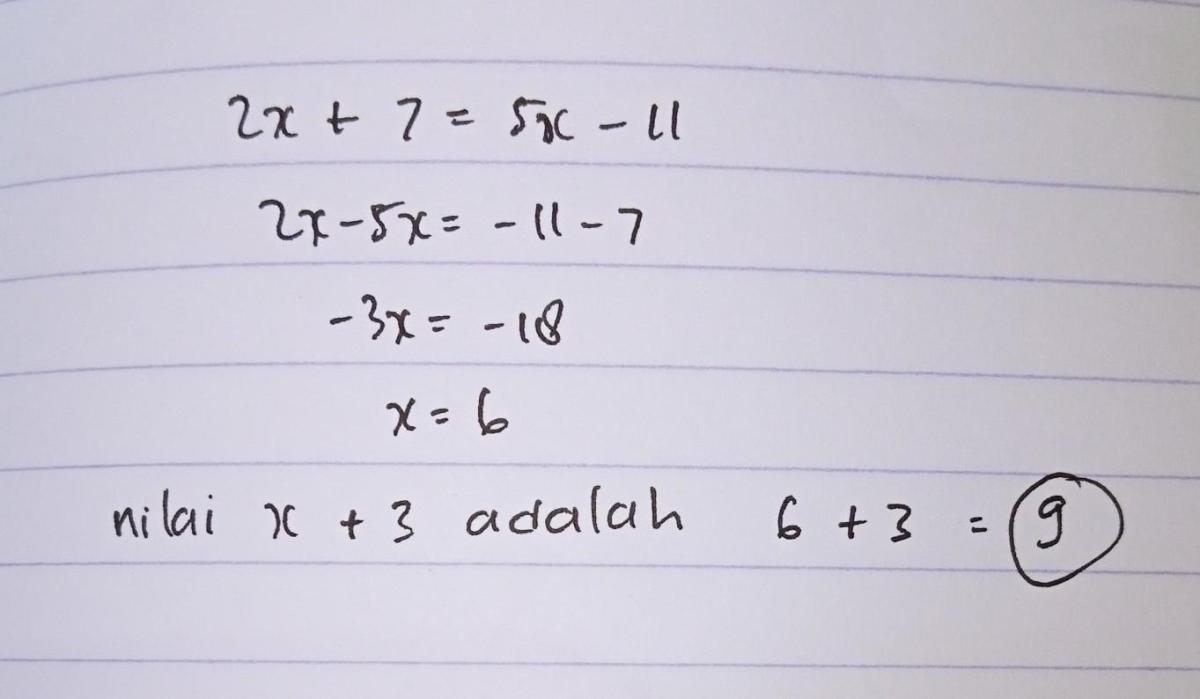 2x + 7 = 5x - 11
2x - 5x = -11 - 7
-3x = -18
x = 6
nilai x + 3 adalah 6 + 3 = 9